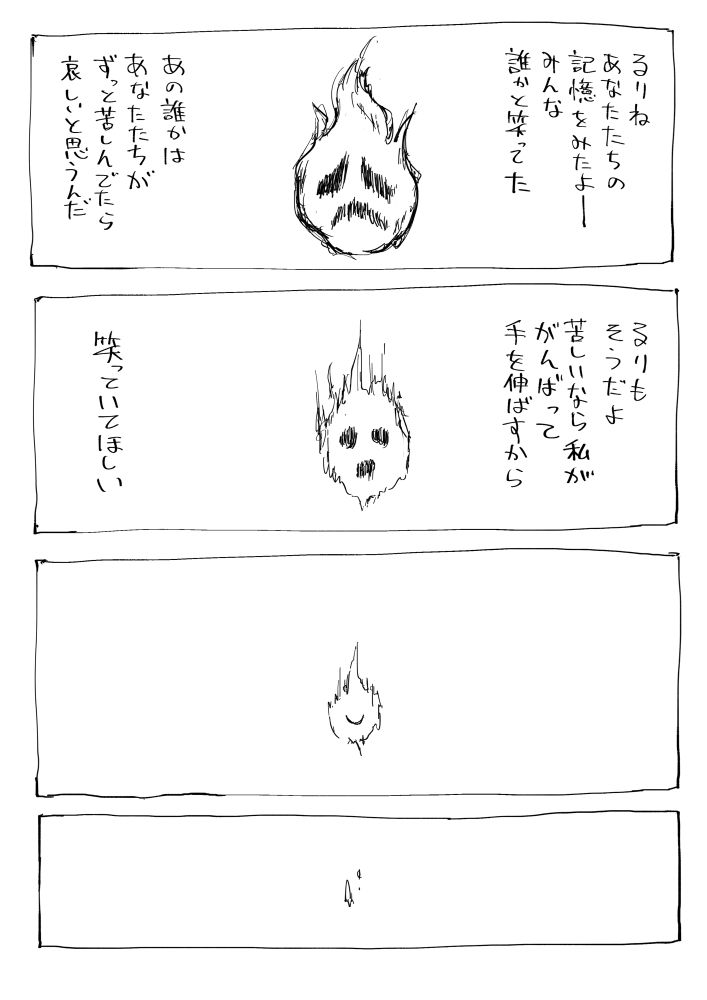 るりね
あなたたちの
記憶をみたよー
みんな
誰かと笑ってた
あの誰かは
あなたたちが
ずっと苦しんでたら
哀しいと思うんだ
るりも
そうだよ
苦しいなら私が
がんばって
手を伸ばすから
笑っていてほしい